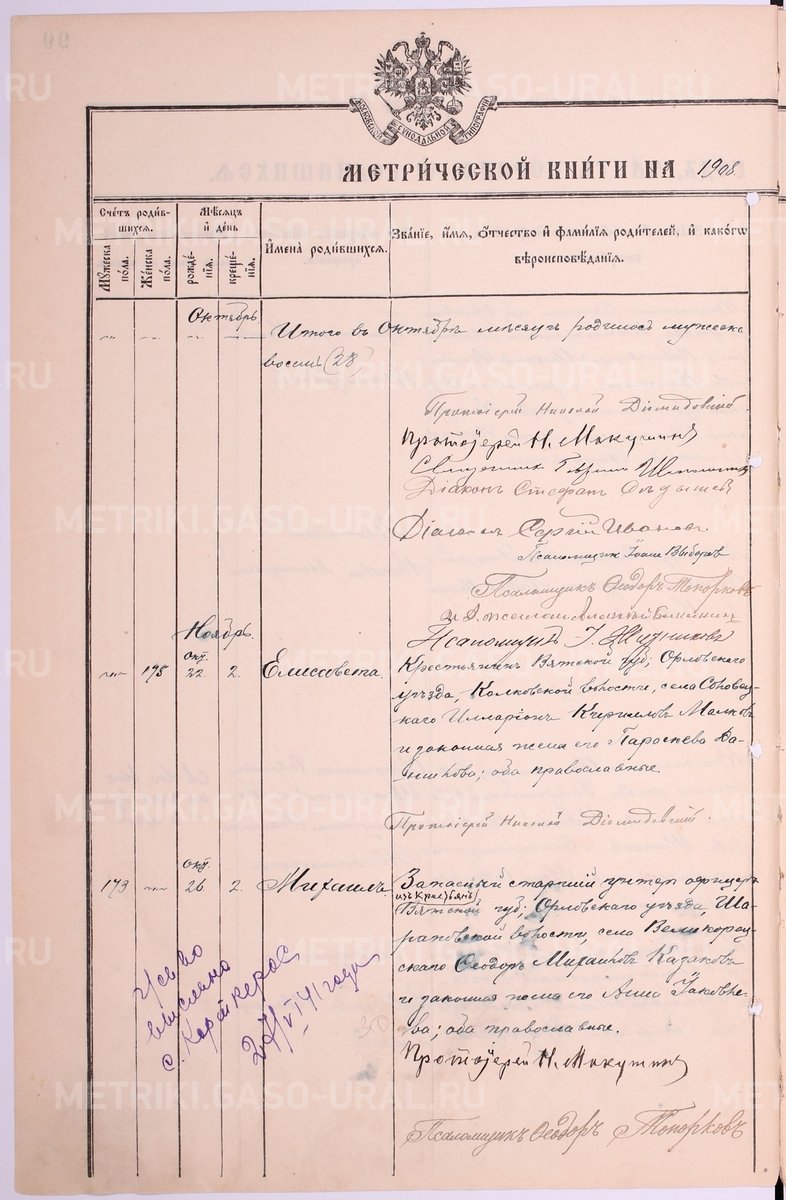 METRIKI.GASO-URAL.RU
МОСКОВСКОЙ СѴНОДАЛЬНОЙ ТИПОГРАФІИ
МЕТРИ́ЧЕСКОЙ КНИ́ГИ НА 1908
Счетъ роди́вшихся.
Мꙋжеска по́ла.
Же́нска по́ла.
Мѣсяцъ и҆ де́нь
рожде́нїѧ.
креще́нїѧ.
И҆мена̀ роди́вшихся.
Зва́нїе, и҆́мѧ, ѻ҆́тчество и҆ фамилїѧ роди́телей, и҆ како́гѡ
вѣроисповѣ́данїѧ.
Октябрь.
Итого въ Октябрѣ мѣсяцѣ родилось мужеска
восемь (28)
Протоіерей Николай Діомидовскій.
Протоіерей Н. Мокушинъ
Священникъ Гавріилъ
Діаконъ Стефанъ
Діаконъ Сергій Ивановъ.
Псаломщикъ Іоаннъ Выборовъ
Псаломщикъ Ѳеодоръ Топорковъ
Псаломщикъ І.
Ноябрь.
195
Окт.
22
2.
Елисавета.
Крестьянинъ Вятской губ., Орловскаго
уѣзда, Колковской волости, села Соловец-
каго Илларіонъ Кирилловъ Малковъ
и законная жена его Параскева Да-
нилова; оба православные.
Протоіерей Николай Діомидовскій.
193
Окт.
26
2.
Михаилъ.
Запасный старшій унтеръ офицеръ
изъ крестьянъ
Вятской губ., Орловскаго уѣзда, Ша-
рановской волости, села Великорец-
скаго Ѳеодоръ Михаиловъ Казаковъ
и законная жена его Анна Яковле-
ва; оба православные.
Протоіерей Н. Мокушинъ
Псаломщикъ Ѳеодоръ Топорковъ
выслано
с. Корткерос
27/VI 41 года